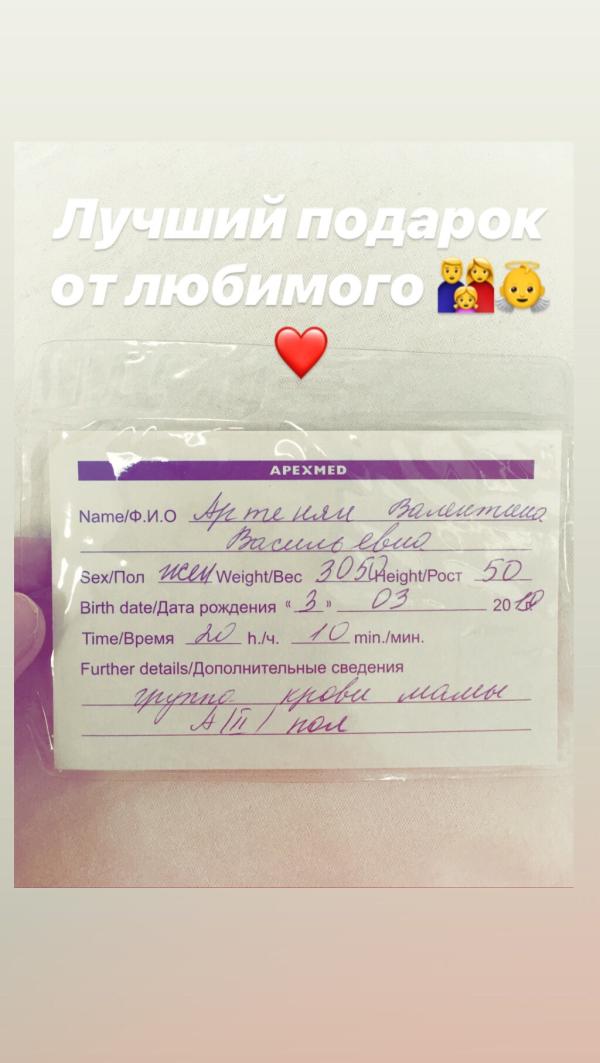 Лучший подарок
от любимого
APEXMED
Name/Ф.И.О Артенян Валентина
Васильевна
Sex/Пол жен Weight/Вес 3050 Height/Рост 50
Birth date/Дата рождения “ 3 ” 03 20
Time/Время 20 h./ч. 10 min./мин.
Further details/Дополнительные сведения
группа крови мамы
A/II/ пол